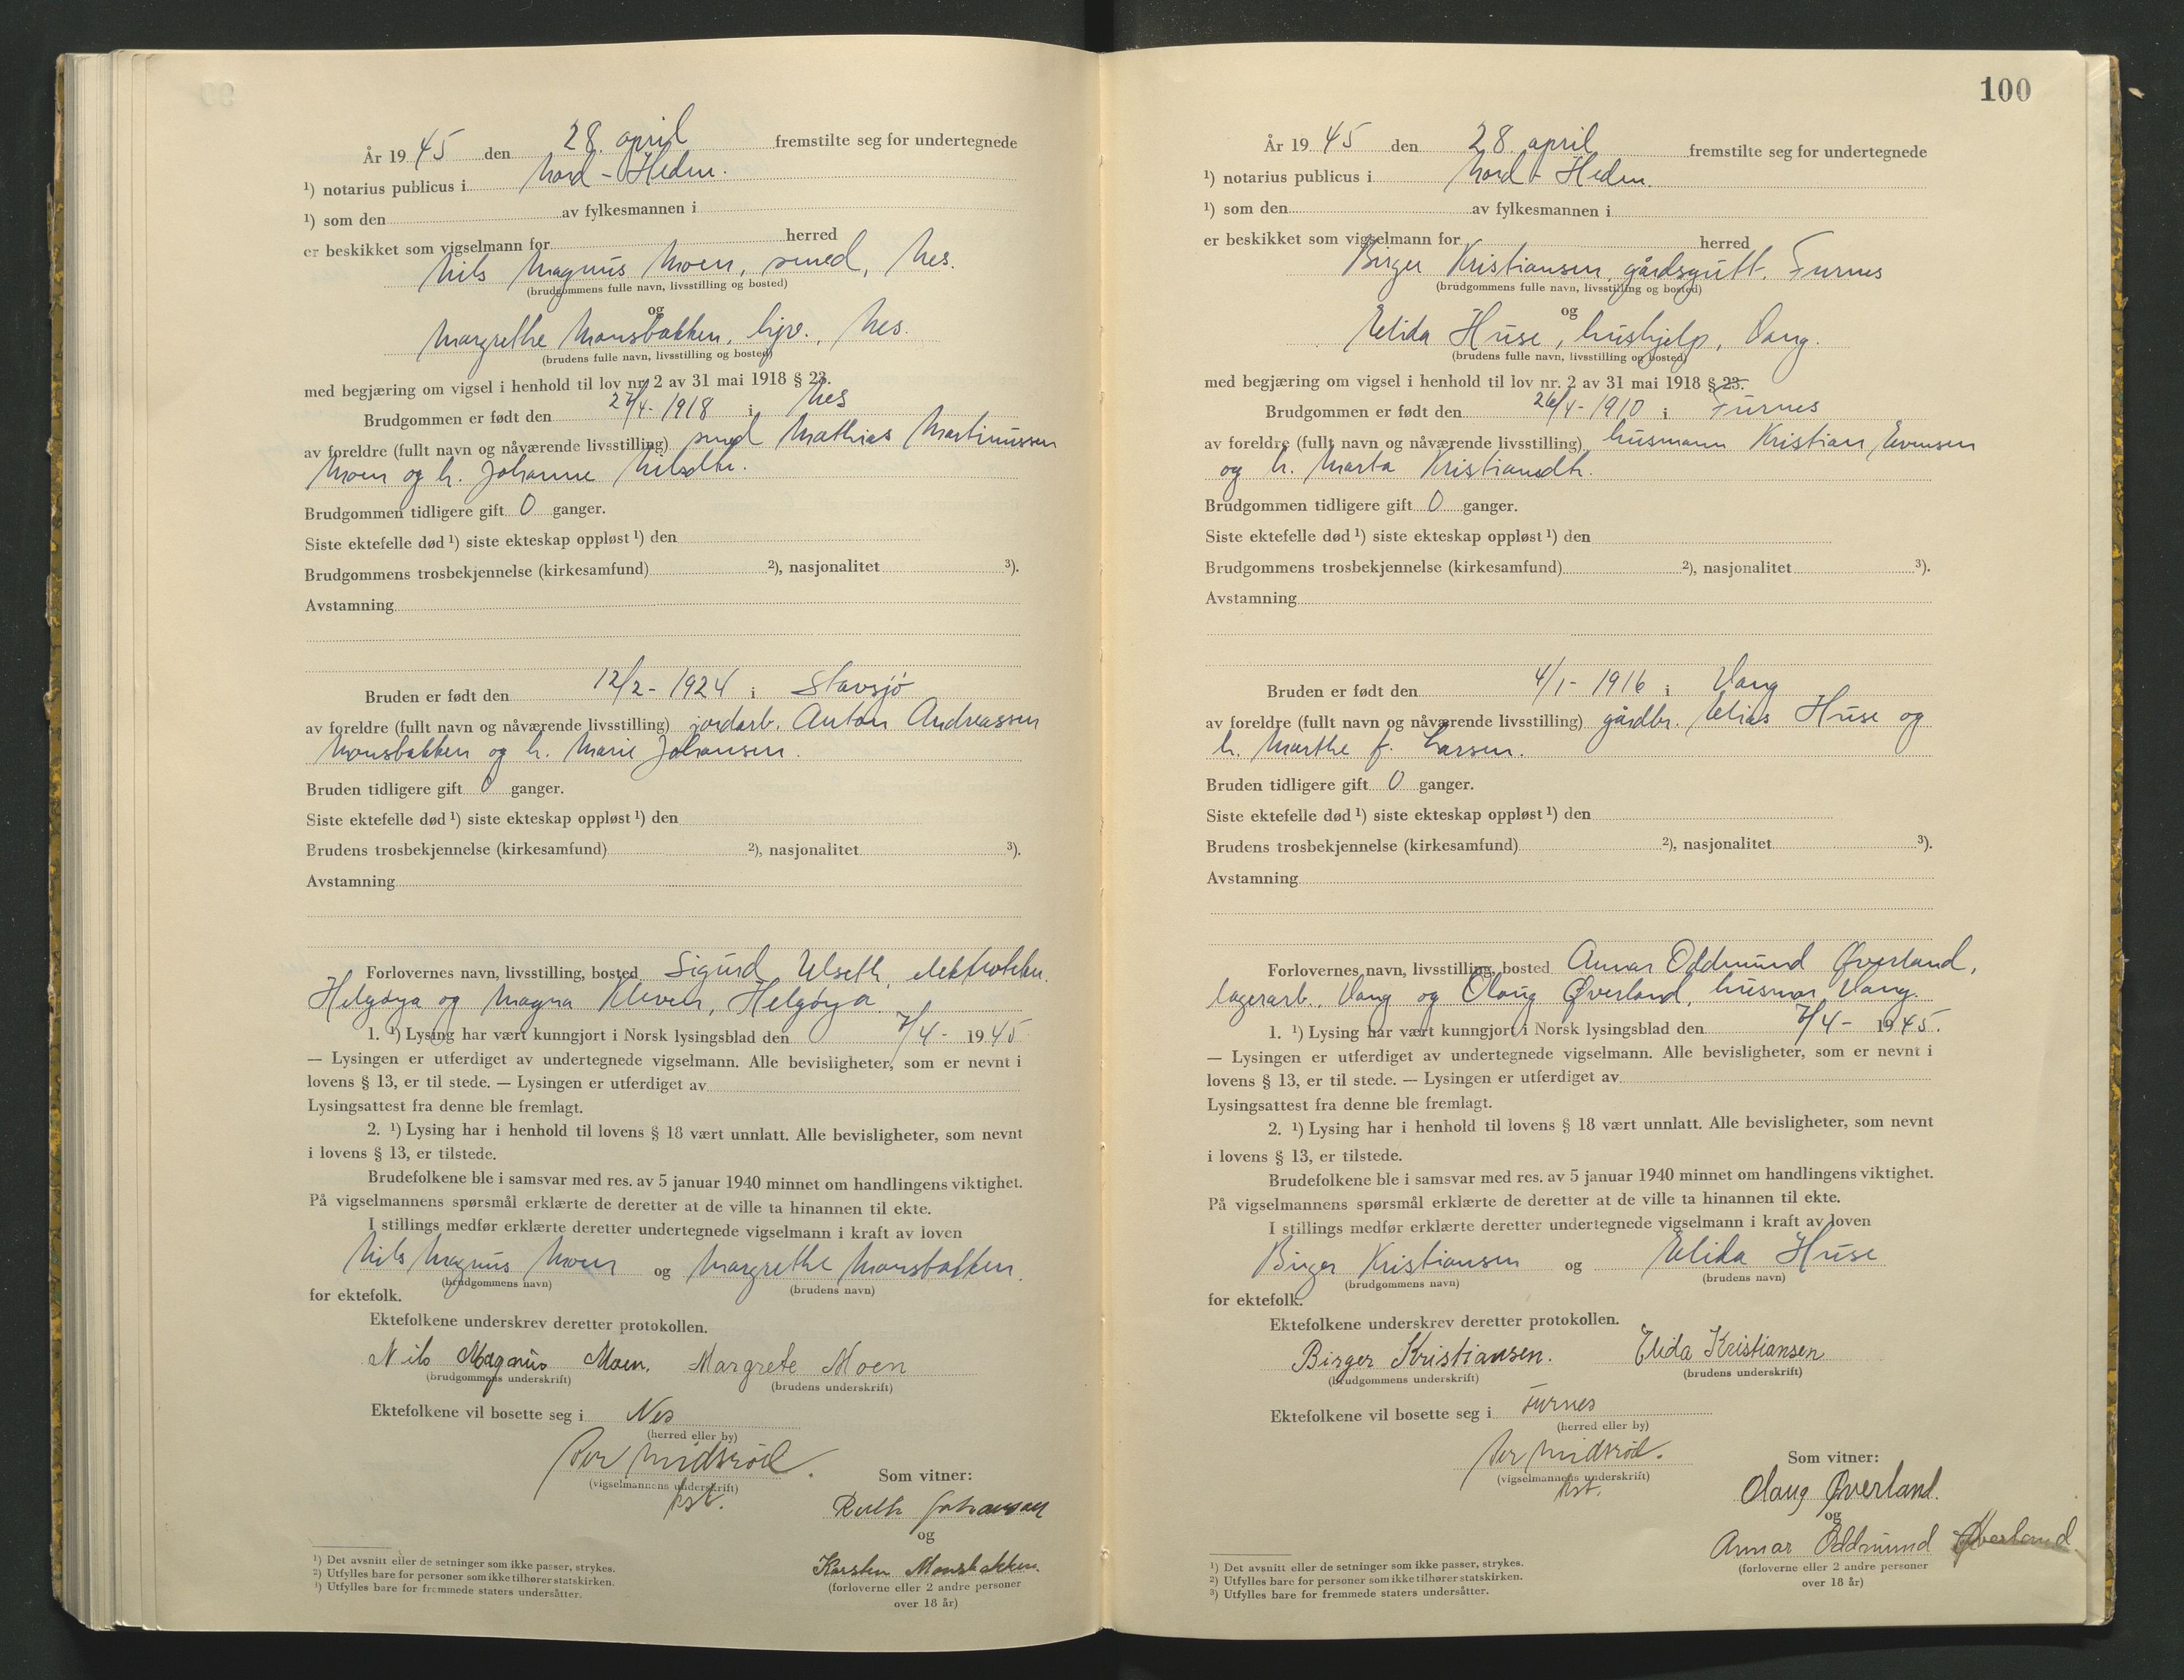 År 19 45 den 28. april fremstilte seg for undertegnede
¹) notarius publicus i Nord - Hedm.
¹) som den av fylkesmannen i
er beskikket som vigselmann for herred
Nils Magnus Moen, smed, Nes.
(brudgommens fulle navn, livsstilling og bosted)
og
Margrethe Monsbakken, hjv., Nes.
(brudens fulle navn, livsstilling og bosted)
med begjæring om vigsel i henhold til lov nr. 2 av 31 mai 1918 § 23.
Brudgommen er født den 27/4- 1918 i Nes
av foreldre (fullt navn og nåværende livsstilling) smed Mathias Martinussen
Moen og h. Johanne Nilsdtr.
Brudgommen tidligere gift 0 ganger.
Siste ektefelle død ¹) siste ekteskap oppløst ¹) den
Brudgommens trosbekjennelse (kirkesamfund) ²), nasjonalitet ³).
Avstamning
Bruden er født den 12/2- 1924 i Stavsjø
av foreldre (fullt navn og nåværende livsstilling) jordarb. Anton Andreassen
Monsbakken og h. Marie Johansen.
Bruden tidligere gift 0 ganger.
Siste ektefelle død ¹) siste ekteskap oppløst ¹) den
Brudens trosbekjennelse (kirkesamfund) ²), nasjonalitet ³).
Avstamning
Forlovernes navn, livsstilling, bosted Sigurd Ulseth,
Helgøya og Magna Kleven, Helgøya.
1. ¹) Lysing har vært kunngjort i Norsk lysingsblad den 7/4- 19 45
— Lysingen er utferdiget av undertegnede vigselmann. Alle bevisligheter, som er nevnt i
lovens § 13, er til stede. — Lysingen er utferdiget av
Lysingsattest fra denne ble fremlagt.
2. ¹) Lysing har i henhold til lovens § 18 vært unnlatt. Alle bevisligheter, som nevnt
i lovens § 13, er tilstede.
Brudefolkene ble i samsvar med res. av 5 januar 1940 minnet om handlingens viktighet.
På vigselmannens spørsmål erklærte de deretter at de ville ta hinannen til ekte.
I stillings medfør erklærte deretter undertegnede vigselmann i kraft av loven
Nils Magnus Moen og Margrethe Monsbakken.
(brudgommens navn) (brudens navn)
for ektefolk.
Ektefolkene underskrev deretter protokollen.
Nils Magnus Moen. Margrete Moen
(brudgommens underskrift) (brudens underskrift)
Ektefolkene vil bosette seg i Nes
(herred eller by)
Per Midsrød.
(vigselmannens underskrift)
kst.
Som vitner:
Ruth Johansen
og
Karsten Monsbakken.
(forloverne eller 2 andre personer
over 18 år)
¹) Det avsnitt eller de setninger som ikke passer, strykes.
²) Utfylles bare for personer som ikke tilhører statskirken.
³) Utfylles bare for fremmede staters undersåtter.
100
År 19 45 den 28. april fremstilte seg for undertegnede
¹) notarius publicus i Nord - Hedm.
¹) som den av fylkesmannen i
er beskikket som vigselmann for herred
Birger Kristiansen, gårdsgutt, Furnes
(brudgommens fulle navn, livsstilling og bosted)
og
Elida Huse, hushjelp, Vang.
(brudens fulle navn, livsstilling og bosted)
med begjæring om vigsel i henhold til lov nr. 2 av 31 mai 1918 § 23.
Brudgommen er født den 26/4- 1910 i Furnes
av foreldre (fullt navn og nåværende livsstilling) husmann Kristian Evensen
og h. Marta Kristiansdtr.
Brudgommen tidligere gift 0 ganger.
Siste ektefelle død ¹) siste ekteskap oppløst ¹) den
Brudgommens trosbekjennelse (kirkesamfund) ²), nasjonalitet ³).
Avstamning
Bruden er født den 4/1- 1916 i Vang
av foreldre (fullt navn og nåværende livsstilling) gårdbr. Elias Huse og
h. Marthe f. Larsen.
Bruden tidligere gift 0 ganger.
Siste ektefelle død ¹) siste ekteskap oppløst ¹) den
Brudens trosbekjennelse (kirkesamfund) ²), nasjonalitet ³).
Avstamning
Forlovernes navn, livsstilling, bosted Annar Oddmund Øverland,
lagerarb. Vang og Olaug Øverland, husmor Vang.
1. ¹) Lysing har vært kunngjort i Norsk lysingsblad den 7/4- 19 45.
— Lysingen er utferdiget av undertegnede vigselmann. Alle bevisligheter, som er nevnt i
lovens § 13, er til stede. — Lysingen er utferdiget av
Lysingsattest fra denne ble fremlagt.
2. ¹) Lysing har i henhold til lovens § 18 vært unnlatt. Alle bevisligheter, som nevnt
i lovens § 13, er tilstede.
Brudefolkene ble i samsvar med res. av 5 januar 1940 minnet om handlingens viktighet.
På vigselmannens spørsmål erklærte de deretter at de ville ta hinannen til ekte.
I stillings medfør erklærte deretter undertegnede vigselmann i kraft av loven
Birger Kristiansen og Elida Huse
(brudgommens navn) (brudens navn)
for ektefolk.
Ektefolkene underskrev deretter protokollen.
Birger Kristiansen. Elida Kristiansen
(brudgommens underskrift) (brudens underskrift)
Ektefolkene vil bosette seg i Furnes
(herred eller by)
Per Midsrød.
(vigselmannens underskrift)
kst.
Som vitner:
Olaug Øverland.
og
Annar Oddmund Øverland.
(forloverne eller 2 andre personer
over 18 år)
¹) Det avsnitt eller de setninger som ikke passer, strykes.
²) Utfylles bare for personer som ikke tilhører statskirken.
³) Utfylles bare for fremmede staters undersåtter.